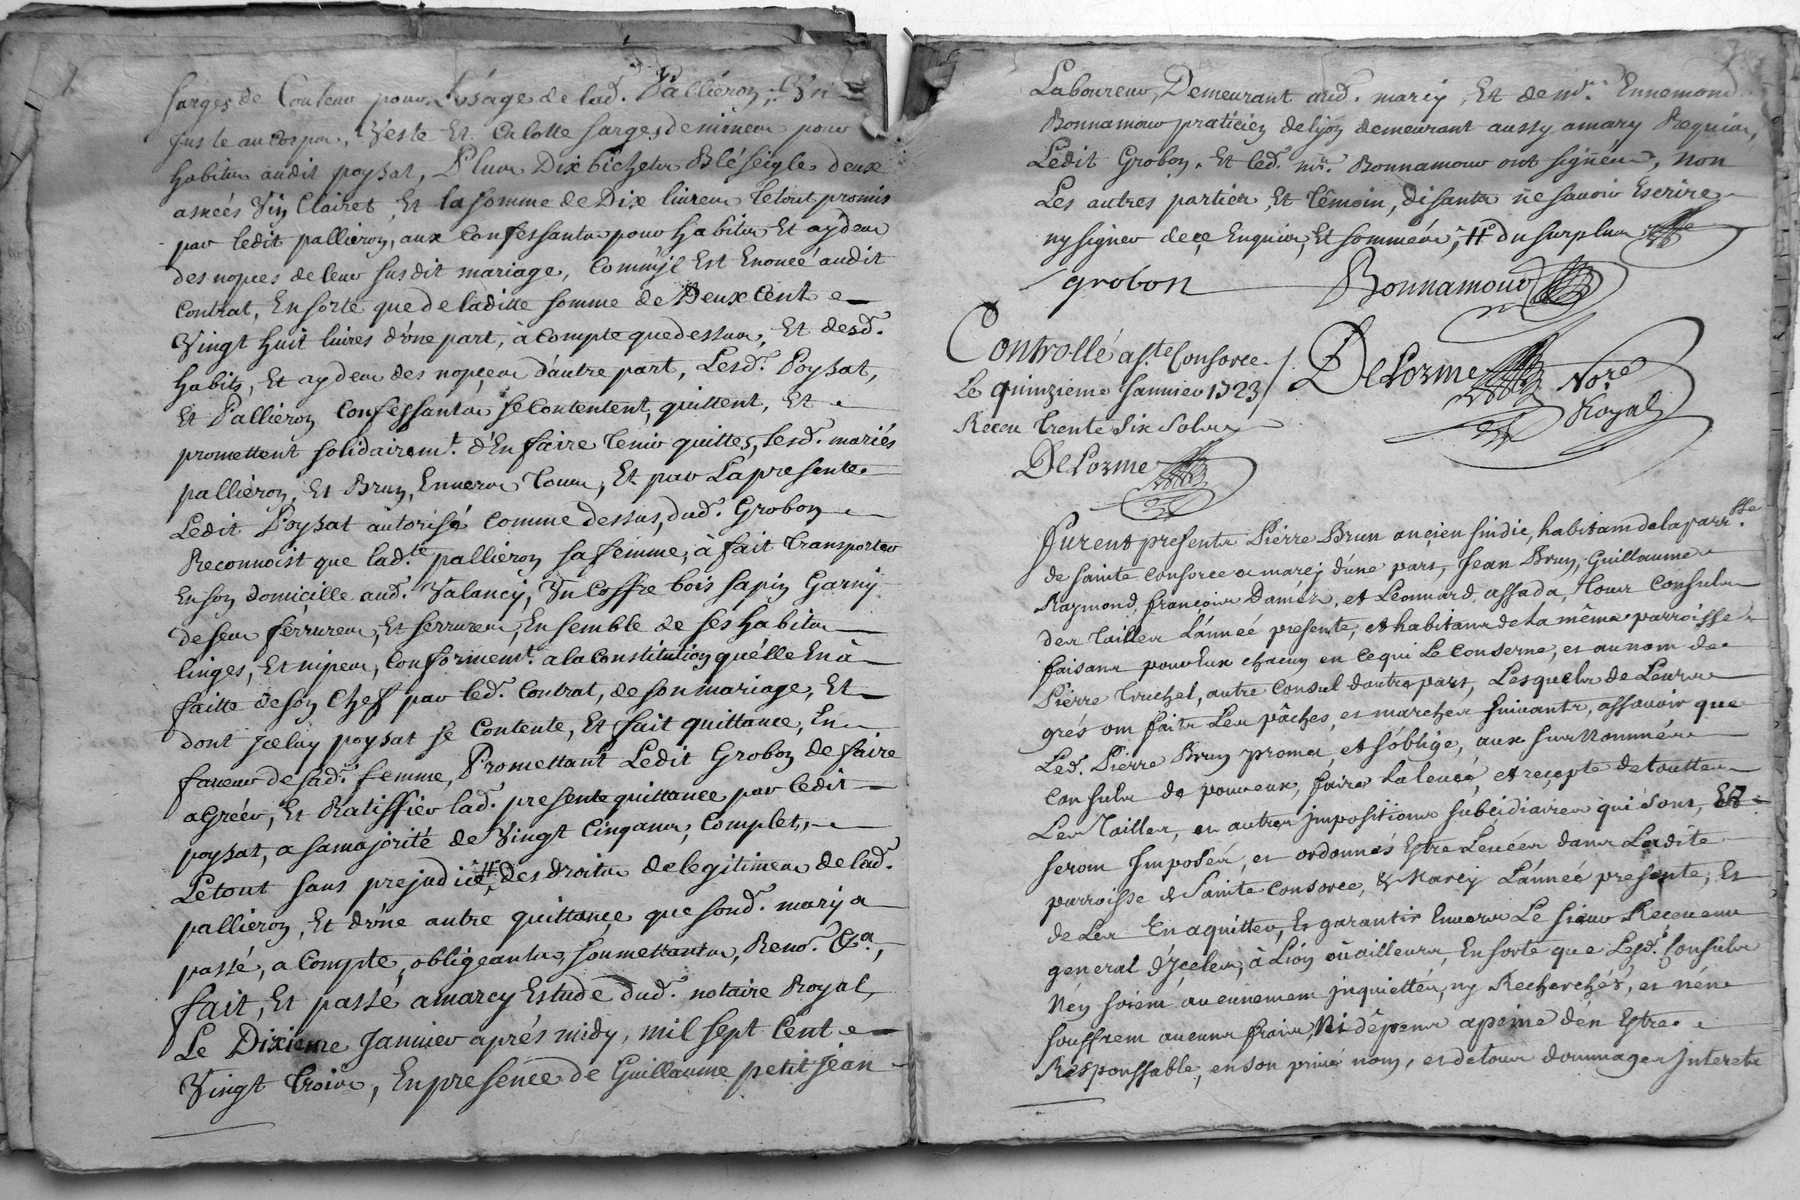 sarges de Couleur pour L'usage de lad. Palliéron, Un
Juste au corps, Veste Et Culotte sarges de mineur pour
habiller audit poysat, Plus Dix bichets Blé seigle deux
asnées Vin Clairet, Et la somme de Dix livres Le tout promis
par ledit palliéron, aux Confessants pour habits Et aydes
des nopces de leur susdit mariage, Comm'jl Est Enoncé audit
Contrat, En sorte que de laditte somme de Deux Cent
Vingt huit livres d'une part, à Compte que dessus, Et desd.
habits, Et aydes des nopces d'autre part, Lesd. Poysat,
Et Palliéron Confessants se Contentent, quittent, Et
promettent solidairemt. d'En faire tenir quittes, Lesd. mariés
palliéron, Et Brun, Envers tous, Et par La presente
Ledit Poysat autorisé comme dessus, dud. Grobon
Reconnoist que lad.te palliéron sa femme, à fait transporter
En son domicille aud. Valancy, Un Coffre bois sapin Garny
de ses ferrures, Et serrures, Ensemble de ses habits
linges, Et nipes, Conformemt. a la Constitution qu'elle En à
faitte de son Chef par led. Contrat, de son mariage, Et
dont Jceluy poysat se Contente, Et fait quittance, En
faveur de sad. femme, Promettant Ledit Grobon de faire
agréer, Et Ratiffier lad. presente quittance par ledit
poysat, a sa majorité de Vingt Cinq ans, Complets,
Le tout sans prejudice, # des droits de legitimes de lad.
palliéron, Et d'une autre quittance, que sond. mary a
passé, a Compte, obligeants, soumettants, Reno. &a.,
fait, Et passé a marcy Estude dud. notaire Royal,
Le Dixieme Janvier aprés midy, mil sept Cent
Vingt trois, En presence de Guillaume petit Jean
Laboureur, Demeurant aud. marcy, Et de mr. Ennemond
Bonnamour praticien de lyon demeurant aussy a marcy Requis,
Ledit Grobon, Et led. mr. Bonnamour ont signés, Non
Les autres parties, Et têmoin, disants ne savoir Escrire
ny signer de ce Enquis, Et sommés, # du surplus
Grobon Bonnamour
Controllé a Ste Consorce
Le quinzieme Janvier 1723
Receu trente six sols
Delorme
Delorme Nore
Royal
Furent presents Pierre Brun ancien sindic, habitant de la parrsse.
de sainte Consorce a marcy d'une part, Jean Brun, Guillaume
Raymond, françois Damés, et Léonnard assada, tous Consuls
des tailles L'année presente, et habitans de la même parroisse
faisans pour Eux chacun en ce qui Le Conserne, et au nom de
Pierre truchet, autre Consul d'autre part, Lesquels de Leurs
grés ont faits Les pâches, et marchés suivants, assavoir que
Led. Pierre Brun promet, et s'oblige, aux surnommés
Consuls de pour eux, faire La levée, et recepte de touttes
Les Tailles, et autres Jmpositions subcidiaires qui sont, Et
seront Jmposés, et ordonnés Estre Levées dans Ladite
parroisse de Sainte Consorce, & Marcy L'année presente, Et
de Les En aquitter, Et garantir Envers Le sieur Receveur
general d'Jcelles, à Lion où ailleurs, En sorte que Lesd. Consuls
N'en soient aucunement jnquiettés, ny Recherchés, et n'en
souffrent aucuns frais, Ni dêpens a peine d'en Estre
Responssable, en son privé nom, et de tous dommages Jnterets